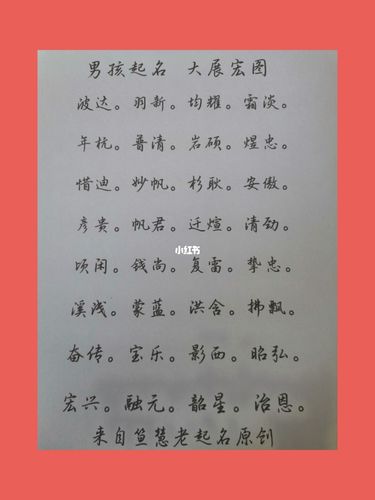 男孩起名 大展宏图
波达。羽新。均耀。霜淡。
年杭。普清。岩硕。煜忠。
惜迪。妙帆。杉耿。安傲。
彦贵。帆君。迁煊。清劲。
小红书
顷闲。钱尚。复雷。挚忠。
溪浅。蒙蓝。洪含。拂飘。
奋传。宝乐。影西。昭弘。
宏兴。融元。韶星。治恩。
来自笪慧老起名原创